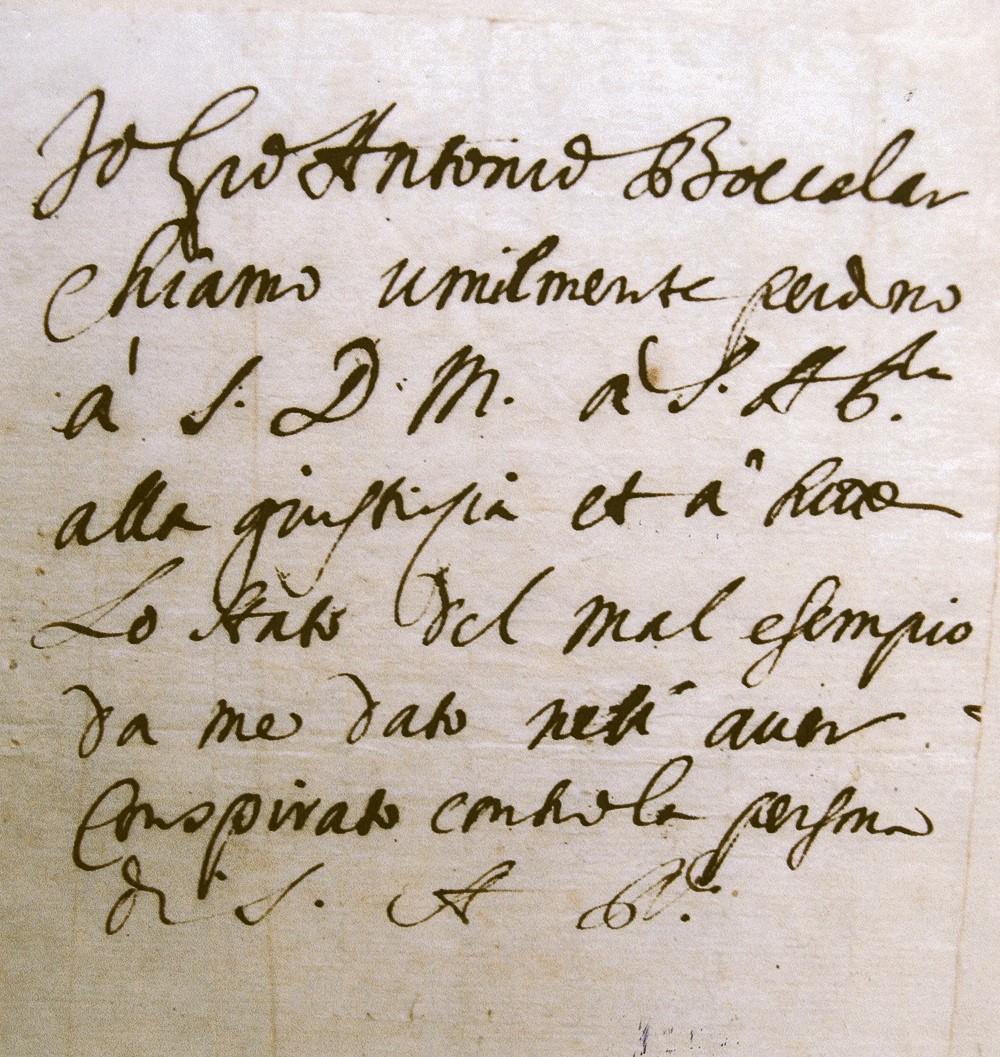 Jo Gio Antonio Boccalar
chiamo umilmente perdono
à S. D. M. à S. A R.
alla giustisia et à tutto
Lo stato del mal esempio
da me dato nell' auer
Conspirato contro la persona
di S. A R.